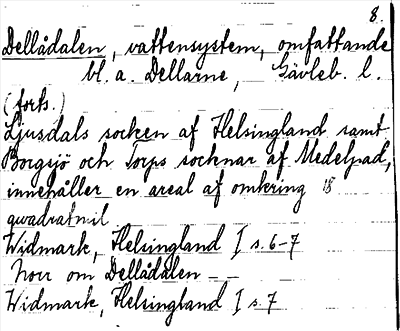 8.
Dellådalen, vattensystem, omfattande
bl. a. Dellarne, Gävleb. l.
(forts.)
Ljusdals socken af Helsingland samt
Borgsjö och Torps socknar af Medelpad,
innehåller en areal af omkring 18
qwadratmil
Widmark, Helsingland I s. 6-7
Norr om Dellådalen - -
Widmark, Helsingland I s. 7